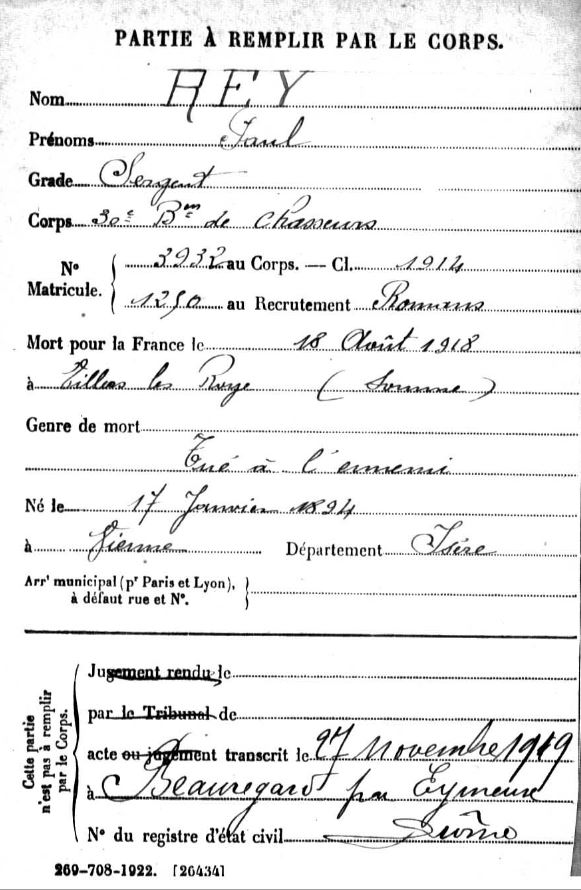 PARTIE À REMPLIR PAR LE CORPS.
Nom REY
Prénoms Paul
Grade Sergent
Corps 30e Bon de Chasseurs
N° Matricule. 3932 au Corps. — Cl. 1914
1250 au Recrutement Romans
Mort pour la France le 18 Août 1918
à Villers les Roye (Somme)
Genre de mort
Tué à l'ennemi
Né le 17 Janvier 1894
à Vienne Département Isère
Arrt municipal (pr Paris et Lyon),
à défaut rue et N°.
Cette partie n'est pas à remplir par le Corps.
Jugement rendu le
par le Tribunal de
acte ou jugement transcrit le 27 novembre 1919
à Beauregard par Eymeux
N° du registre d'état civil Drôme
269-708-1922. [26434]